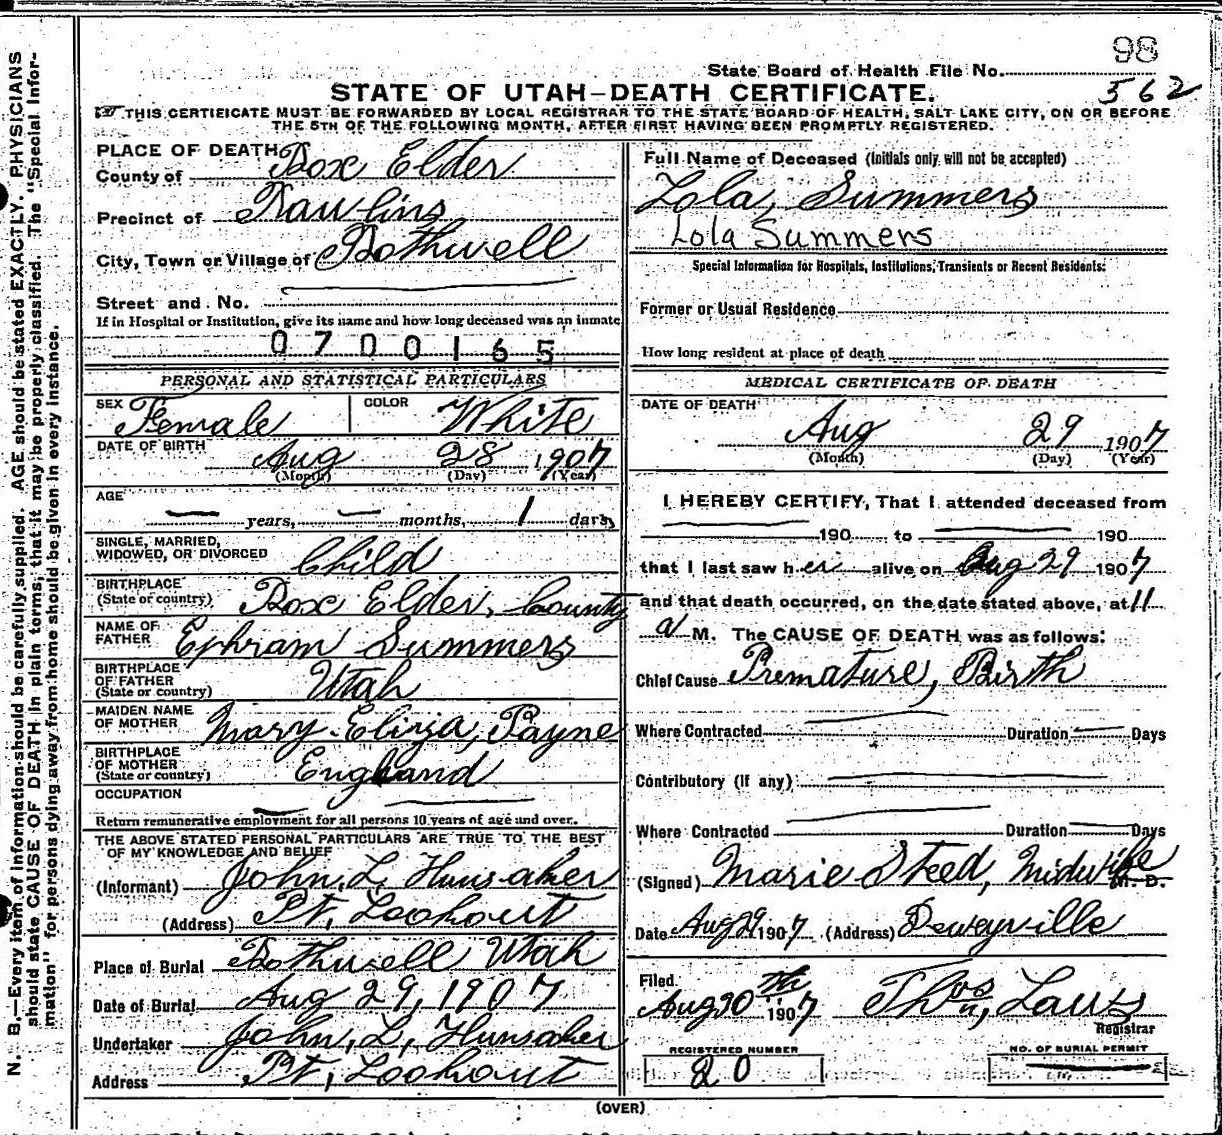 98
State Board of Health File No.
562
STATE OF UTAH—DEATH CERTIFICATE.
THIS CERTIFICATE MUST BE FORWARDED BY LOCAL REGISTRAR TO THE STATE BOARD OF HEALTH, SALT LAKE CITY, ON OR BEFORE
THE 5TH OF THE FOLLOWING MONTH, AFTER FIRST HAVING BEEN PROMPTLY REGISTERED.
N. B.—Every item of information should be carefully supplied. AGE should be stated EXACTLY. PHYSICIANS
should state CAUSE OF DEATH in plain terms, that it may be properly classified. The "Special Infor-
mation" for persons dying away from home should be given in every instance.
PLACE OF DEATH
County of Box Elder
Precinct of Rawlins
City, Town or Village of Bothwell
Street and No.
If in Hospital or Institution, give its name and how long deceased was an inmate
0700165
PERSONAL AND STATISTICAL PARTICULARS
SEX Female COLOR White
DATE OF BIRTH
Aug 28 1907
(Month) (Day) (Year)
AGE
— years, — months, 1 days
SINGLE, MARRIED,
WIDOWED, OR DIVORCED Child
BIRTHPLACE
(State or country) Box Elder, County
NAME OF
FATHER Ephram Summers
BIRTHPLACE
OF FATHER
(State or country) Utah
MAIDEN NAME
OF MOTHER Mary Eliza, Payne
BIRTHPLACE
OF MOTHER
(State or country) England
OCCUPATION
Return remunerative employment for all persons 10 years of age and over.
THE ABOVE STATED PERSONAL PARTICULARS ARE TRUE TO THE BEST
OF MY KNOWLEDGE AND BELIEF
(Informant) John, L, Hunsaker
(Address) Pt, Lookout
Place of Burial Bothwell Utah
Date of Burial Aug 29, 1907
Undertaker John, L, Hunsaker
Address Pt, Lookout
Full Name of Deceased (Initials only will not be accepted)
Lola, Summers
Lola Summers
Special Information for Hospitals, Institutions, Transients or Recent Residents:
Former or Usual Residence
How long resident at place of death
MEDICAL CERTIFICATE OF DEATH
DATE OF DEATH
Aug 29 1907
(Month) (Day) (Year)
I HEREBY CERTIFY, That I attended deceased from
190 to 190
that I last saw her alive on Aug 29 1907
and that death occurred, on the date stated above, at 11
a M. The CAUSE OF DEATH was as follows:
Chief Cause Premature, Birth
Where Contracted Duration — Days
Contributory (if any)
Where Contracted Duration — Days
(Signed) Marie Steed, Midwife M. D.
Date Aug 29 1907 (Address) Deweyville
Filed
Aug 30th 1907 Thos
Registrar
REGISTERED NUMBER
20
NO. OF BURIAL PERMIT
(OVER)